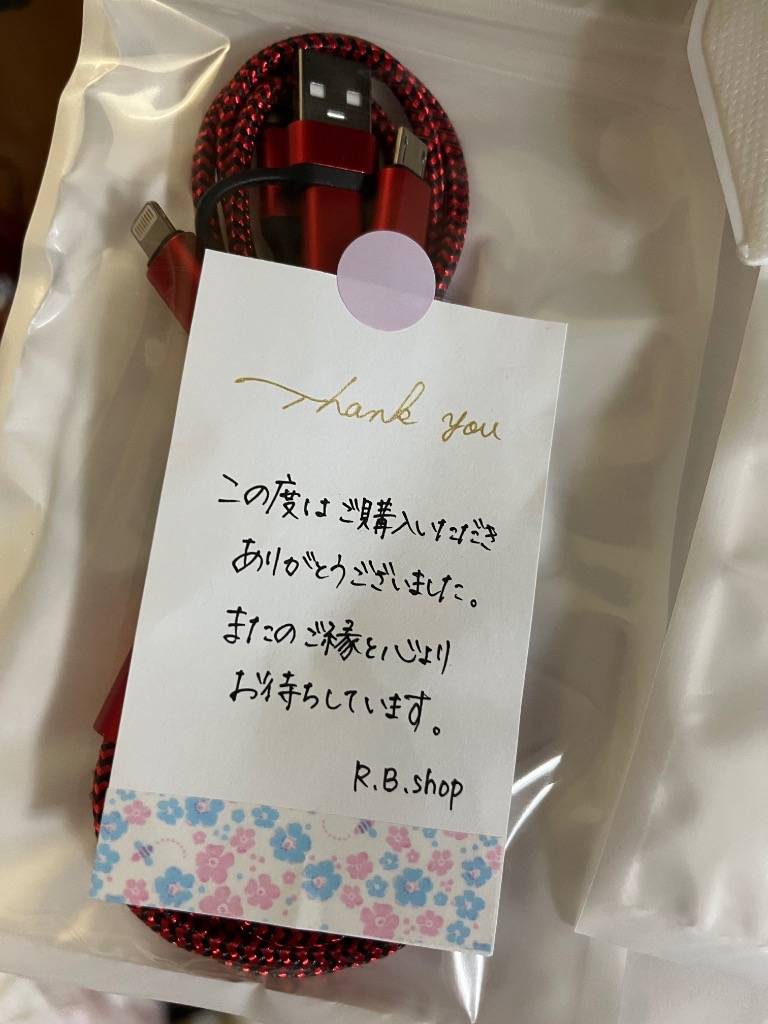 Thank you
この度はご購入いただき
ありがとうございました。
またのご縁を心より
お待ちしています。
R.B.shop